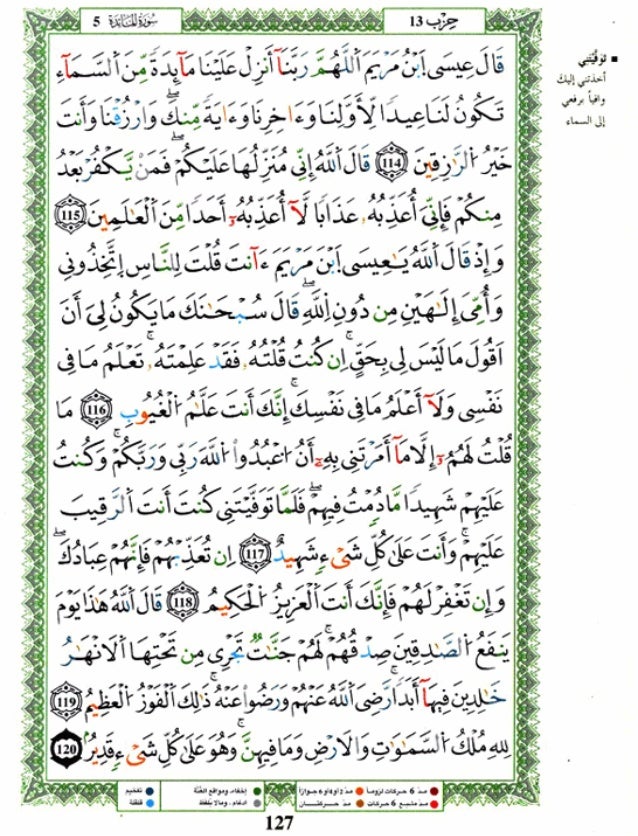 سُورَةُ المَائِدَة 5
حِزْب 13
قَالَ عِيسَى اَبْنُ مَرْيَمَ اَللَّهُمَّ رَبَّنَآ أَنزِلْ عَلَيْنَا مَآئِدَةً مِّنَ اَلسَّمَآءِ
تَكُونُ لَنَا عِيدًا لِّأَوَّلِنَا وَءَاخِرِنَا وَءَايَةً مِّنكَۖ وَارْزُقْنَا وَأَنتَ
خَيْرُ اُلرَّٰزِقِينَ 114 قَالَ اَللَّهُ إِنِّى مُنَزِّلُهَا عَلَيْكُمْۖ فَمَنْ يَّكْفُرْ بَعْدُ
مِنكُمْ فَإِنِّىٓ أُعَذِّبُهُۥ عَذَابًا لَّآ أُعَذِّبُهُۥٓ أَحَدًا مِّنَ اَلْعَٰلَمِينَ 115
وَإِذْ قَالَ اَللَّهُ يَٰعِيسَى اَبْنَ مَرْيَمَ ءَآنتَ قُلْتَ لِلنَّاسِ اِتَّخِذُونِى
وَأُمِّىَ إِلَٰهَيْنِ مِن دُونِ اِللَّهِۖ قَالَ سُبْحَٰنَكَ مَا يَكُونُ لِىَ أَنْ
اَقُولَ مَا لَيْسَ لِى بِحَقٍّۚ اِن كُنتُ قُلْتُهُۥ فَقَدْ عَلِمْتَهُۥۚ تَعْلَمُ مَا فِى
نَفْسِى وَلَآ أَعْلَمُ مَا فِى نَفْسِكَۚ إِنَّكَ أَنتَ عَلَّٰمُ اُلْغُيُوبِ 116 مَا
قُلْتُ لَهُمُۥٓ إِلَّا مَآ أَمَرْتَنِى بِهِۦٓ أَنُ اُعْبُدُوا۟ اُللَّهَ رَبِّى وَرَبَّكُمْۚ وَكُنتُ
عَلَيْهِمْ شَهِيدًا مَّا دُمْتُ فِيهِمْۖ فَلَمَّا تَوَفَّيْتَنِى كُنتَ أَنتَ اَلرَّقِيبَ
عَلَيْهِمْۚ وَأَنتَ عَلَىٰ كُلِّ شَىْءٍ شَهِيدٌ 117 اِن تُعَذِّبْهُمْ فَإِنَّهُمْ عِبَادُكَۖ
وَإِن تَغْفِرْ لَهُمْ فَإِنَّكَ أَنتَ اَلْعَزِيزُ اُلْحَكِيمُ 118 قَالَ اَللَّهُ هَٰذَا يَوْمَ
يَنفَعُ اُلصَّٰدِقِينَ صِدْقُهُمْۚ لَهُمْ جَنَّٰتٌ تَجْرِى مِن تَحْتِهَا اَلَانْهَٰرُ
خَٰلِدِينَ فِيهَآ أَبَدًاۚ رَّضِىَ اَللَّهُ عَنْهُمْ وَرَضُوا۟ عَنْهُۚ ذَٰلِكَ اَلْفَوْزُ اُلْعَظِيمُ 119
لِلهِ مُلْكُ اُلسَّمَٰوَٰتِ وَالَارْضِ وَمَا فِيهِنَّۚ وَهُوَ عَلَىٰ كُلِّ شَىْءٍ قَدِيرٌ 120
■ تَوَفَّيْتَنِي
أخذتني إليك
وافياً برفعي
إلى السماء
مدّ 6 حركات لزوماً
مدّ 2 أو 4 أو 6 جوازاً
إخفاء، ومواقع الغُنَّة
تفخيم
مدّ مشبع 6 حركات
مدّ حركتان
ادغام، ومالا يلفظ
قلقلة
127